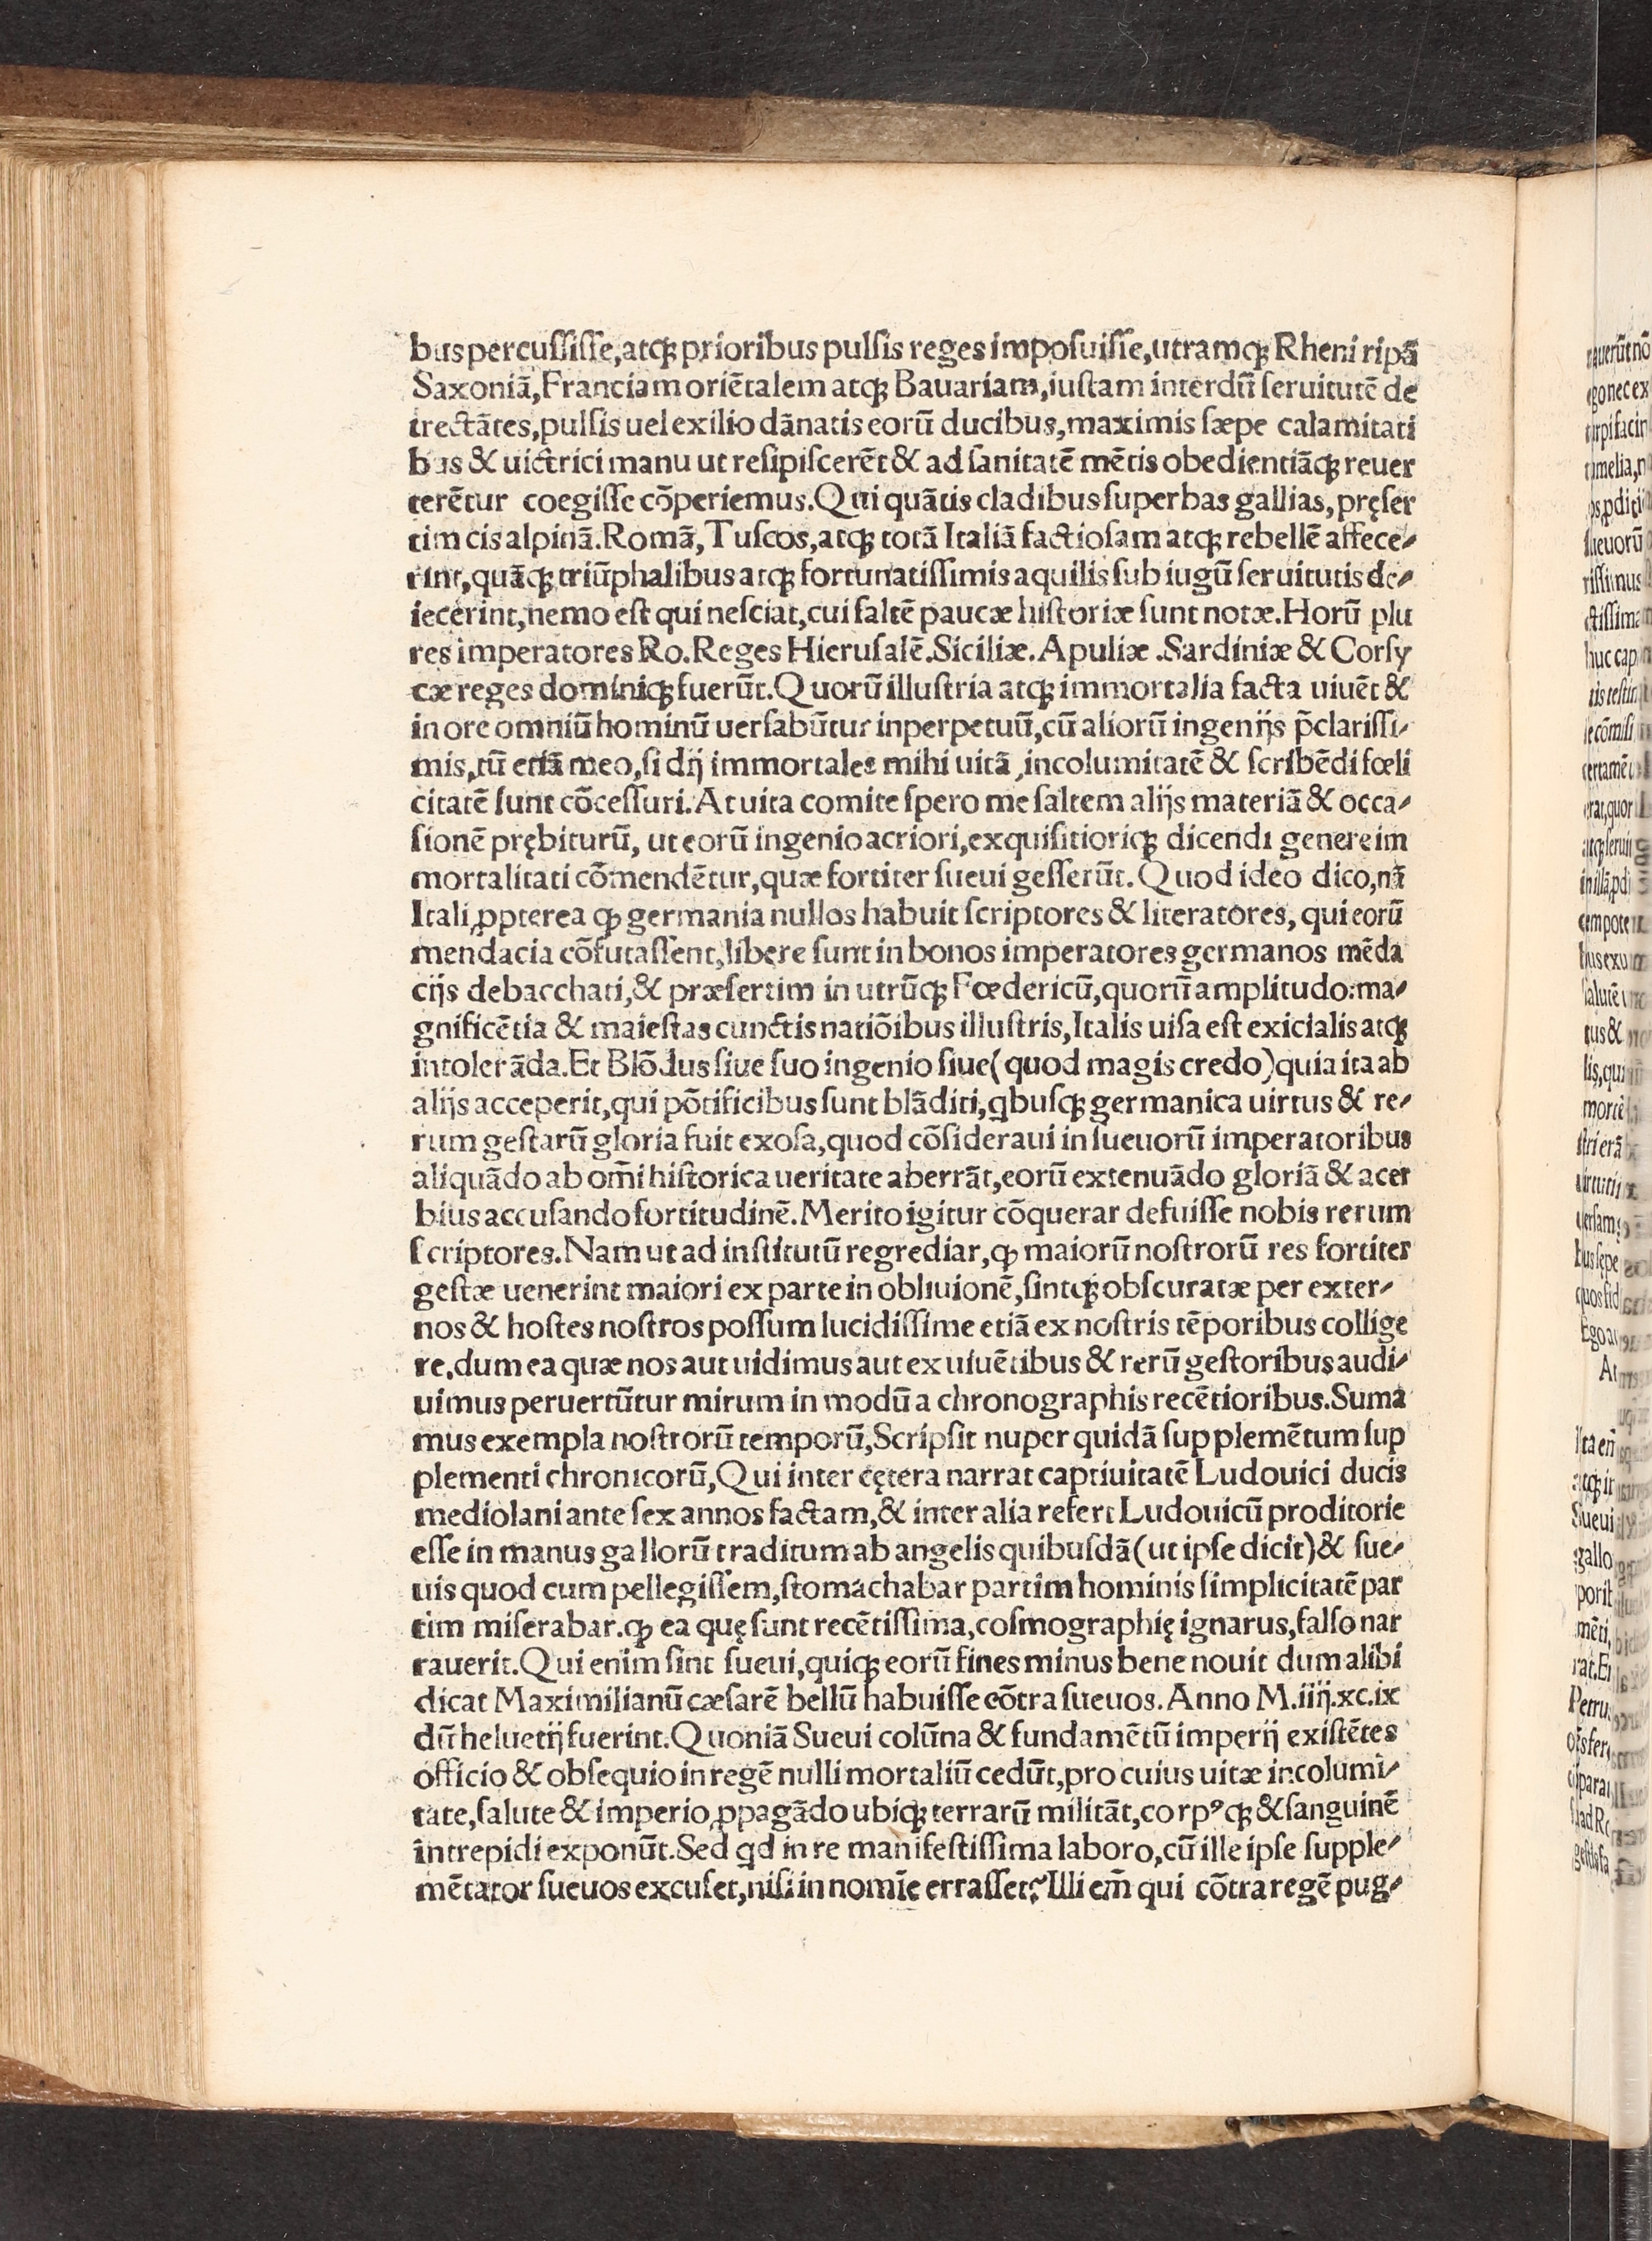 bus percuſſiſſe,atqꝫ prioribus pulſis reges impoſuiſſe,utramqꝫ Rheni ripā
Saxoniā,Franciam oriētalem atqꝫ Bauariam,iuſtam interdū ſeruitutē de
trectātes,pulſis uel exilio dānatis eorū ducibus,maximis ſæpe calamitati
bus & uictrici manu ut reſipiſcerēt & ad ſanitatē mētis obedientiāqꝫ reuer
terētur coegiſſe cōperiemus.Qui quātis cladibus ſuperbas gallias, pręſer
tim cis alpinā.Romā,Tuſcos,atqꝫ totā Italiā factioſam atqꝫ rebellē affece⸗
rint,quāqꝫ triūphalibus atqꝫ fortunatiſſimis aquilis ſub iugū ſeruitutis de⸗
iecerint,nemo eſt qui neſciat,cui ſaltē paucæ hiſtoriæ ſunt notæ.Horū plu
res imperatores Ro.Reges Hieruſalē.Siciliæ.Apuliæ .Sardiniæ & Corſy
cæ reges dominiqꝫ fuerūt.Quorū illuſtria atqꝫ immortalia facta uiuēt &
in ore omniū hominū uerſabūtur inperpetuū,cū aliorū ingenijs p̄clariſſi⸗
mis,tū etiā meo,ſi dij immortales mihi uitā ,incolumitatē & ſcribēdi fœli
citatē ſunt cōceſſuri.At uita comite ſpero me ſaltem alijs materiā & occa⸗
ſionē prębiturū, ut eorū ingenio acriori,exquiſitioriqꝫ dicendi genere im
mortalitati cōmendētur,quæ fortiter ſueui geſſerūt.Quod ideo dico,nā
Itali ꝓpterea ꝙ germania nullos habuit ſcriptores & literatores, qui eorū
mendacia cōfutaſſent,libere ſunt in bonos imperatores germanos mēda
cijs debacchati,& præſertim in utrūqꝫ Fœdericū,quorū amplitudo:ma⸗
gnificētia & maieſtas cunctis natiōibus illuſtris,Italis uiſa eſt exicialis atqꝫ
intolerāda.Et Blōdus ſiue ſuo ingenio ſiue(quod magis credo)quia ita ab
alijs acceperit,qui pōtificibus ſunt blāditi,ꝗbuſqꝫ germanica uirtus & re⸗
rum geſtarū gloria fuit exoſa,quod cōſideraui in ſueuorū imperatoribus
aliquādo ab om̄i hiſtorica ueritate aberrāt,eorū extenuādo gloriā & acer
bius accuſando fortitudinē.Merito igitur cōquerar defuiſſe nobis rerum
ſcriptores.Nam ut ad inſtitutū regrediar,ꝙ maiorū noſtrorū res fortiter
geſtæ uenerint maiori ex parte in obliuionē,ſintqꝫ obſcuratæ per exter⸗
nos & hoſtes noſtros poſſum lucidiſſime etiā ex noſtris tēporibus collige
re,dum ea quæ nos aut uidimus aut ex uiuētibus & rerū geſtoribus audi⸗
uimus peruertūtur mirum in modū a chronographis recētioribus.Suma
mus exempla noſtrorū temporū,Scripſit nuper quidā ſupplemētum ſup
plementi chronicorū,Qui inter cętera narrat captiuitatē Ludouici ducis
mediolani ante ſex annos factam,& inter alia refert Ludouicū proditorie
eſſe in manus gallorū traditum ab angelis quibuſdā(ut ipſe dicit)& ſue⸗
uis quod cum pellegiſſem,ſtomachabar partim hominis ſimplicitatē par
tim miſerabar.ꝙ ea quę ſunt recētiſſima,coſmographię ignarus,falſo nar
rauerit.Qui enim ſint ſueui,quiqꝫ eorū fines minus bene nouit dum alibi
dicat Maximilianū cæſarē bellū habuiſſe cōtra ſueuos.Anno M.iiij.xc.ix
dū heluetij fuerint.Quoniā Sueui colūna & fundamētū imperij exiſtētes
officio & obſequio in regē nulli mortaliū cedūt,pro cuius uitæ incolumi⸗
tate,ſalute & imperio ꝓpagādo ubiqꝫ terrarū militāt,corpꝰqꝫ & ſanguinē
intrepidi exponūt.Sed qd in re manifeſtiſſima laboro,cū ille ipſe ſupple⸗
mētator ſueuos excuſet,niſi in nomīe erraſſet?Illi em̄ qui cōtra regē pug⸗